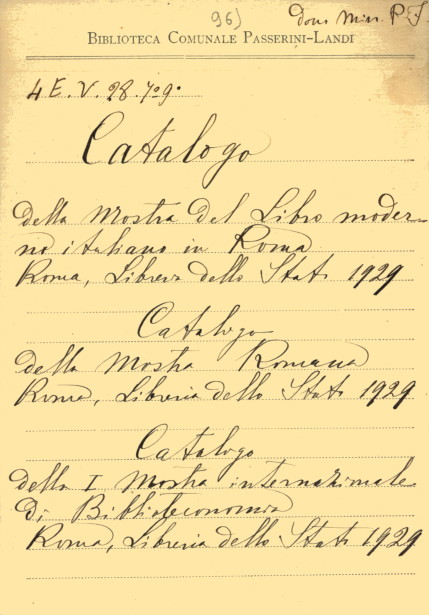 96)
dono Min. P.I.
BIBLIOTECA COMUNALE PASSERINI-LANDI
4 E. V. 28. 709.
Catalogo
della Mostra del Libro moder-
no italiano in Roma
Roma, Libreria dello Stato 1929
Catalogo
della Mostra Romana
Roma, Libreria dello Stato 1929
Catalogo
della I Mostra internazionale
di Biblioteconomia
Roma, Libreria dello Stato 1929